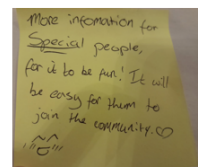 More infomation for
Special people,
for it to be fun! It will
be easy for them to
join the community.